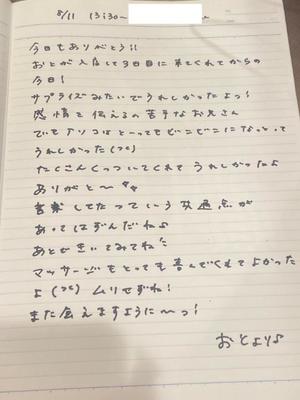 8/11 13:30〜
今日もありがとう!!
おとが入店して3日目に来てくれてからの
今日!
サプライズみたいでうれしかったよっ!
感情を伝えるの苦手なお兄さん
でも アソコはとーってもビンビンになっとって
うれしかった
たくさんくっついてくれて うれしかった♪
ありがと〜
音楽してたっていう共通点が
あってはずんだね♪
あとできいてみてね
マッサージもとっても喜んでくれてよかった
よ ムリせずね!
また会えますように〜っ!
おとより♪